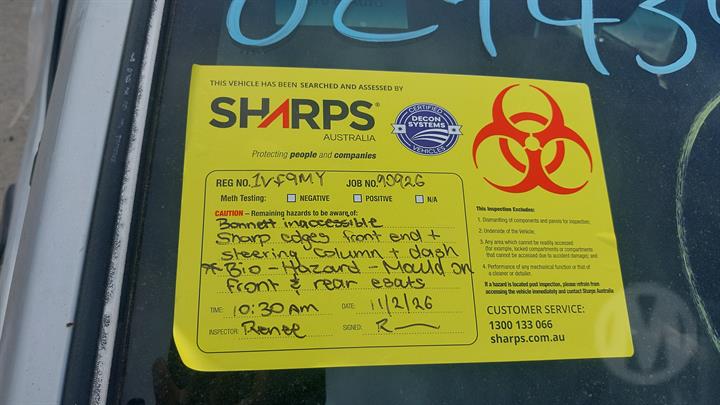 THIS VEHICLE HAS BEEN SEARCHED AND ASSESSED BY
SHARPS®
AUSTRALIA
Protecting people and companies
CERTIFIED
DECON
SYSTEMS
VEHICLES
REG NO. 1VF9MY JOB NO. 90926
Meth Testing: NEGATIVE POSITIVE N/A
CAUTION – Remaining hazards to be aware of:
Bonnett inaccessible
Sharp edges front end +
steering column + dash
* Bio-Hazard - Mould on
front & rear esats
TIME: 10:30 AM DATE: 11/2/26
INSPECTOR: Renee SIGNED: R
This Inspection Excludes:
1. Dismantling of components and panels for inspection;
2. Underside of the Vehicle;
3. Any area which cannot be readily accessed
(for example, locked compartments or compartments
that cannot be accessed due to accident damage); and
4. Performance of any mechanical function or that of
a cleaner or detailer.
If a hazard is located post inspection, please refrain from
accessing the vehicle immediately and contact Sharps Australia
CUSTOMER SERVICE:
1300 133 066
sharps.com.au